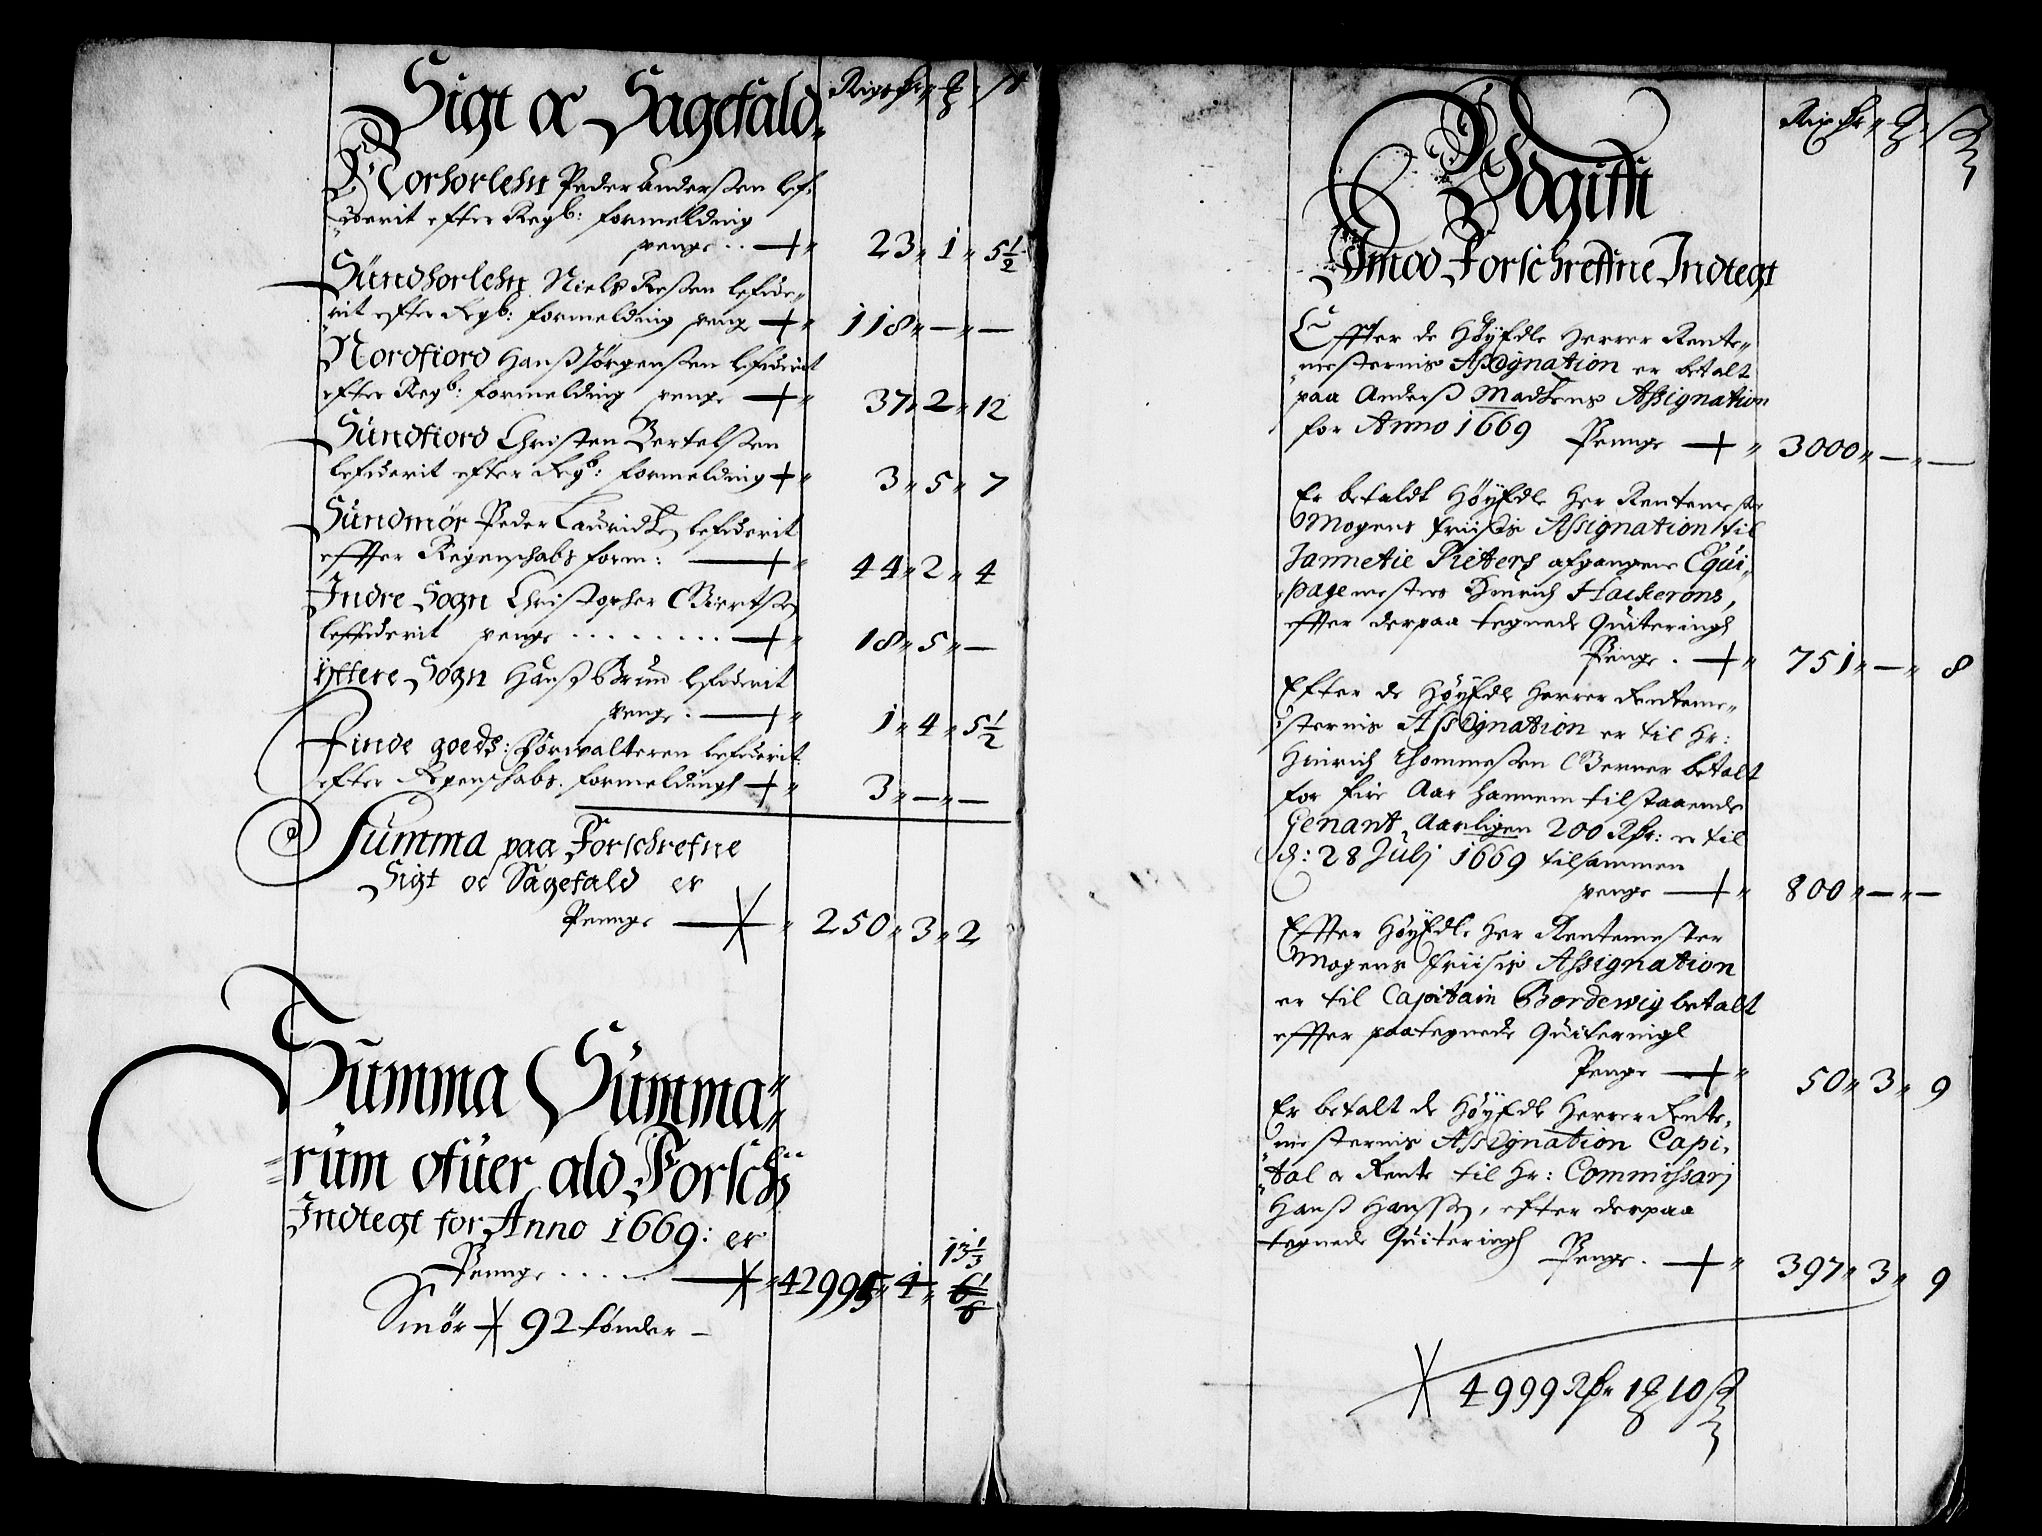 Sigt oc Sagefald. Rixdr " ꝗ " ß
Norhorlehn Peder Anderßen lef-
uerit efter Regb: formelding
penge .. —+" 23" 1" 5½
Sündhorlehn Niels Reßen lefude-
rit efter Regb: formelding peng +" 118"—"—
Nordfiord Hanß Jörgenßen lefuderit
efter Regb: formelding penge —+" 37" 2" 12
Sündfiord Christen Bertelßen
lefuderit efter Regb: formelding +" 3" 5" 7
Sündmör Peder Lauridtz lefuderit
effter Regenschabs form: —+" 44" 2" 4
Indre Sogn Christopher Giertß
leffuderit penge ........ —+" 18" 5"—
Yttere Sogn Hanß Brun lefuderit
penge . —+" 1" 4" 5½
Finde goeds: Forvalteren lefuderit
efter Regenschabs: formeldingh +" 3"—"—
Summa paa Forschrefne
Sigt oc Sagefald er
Pennge —+" 250" 3" 2
Summa Summa-
rum ofuer ald Forschr:
Indtegt for Anno 1669: er
13⅓
Pennge ..... —+" 42995" 4" 6⅙
Smör + 92 tønder —
Rixdr " ꝗ " ß
Vdgifft
Imod Forschreffne Indtegt
Effter de HøyEdle Herrer Rente-
mesternis Assignation er betalt
paa Anderß Madtzens Assignation
for Anno 1669 Pennge —+" 3000"—"—
Er betaldt HøyEdle Her Rentemester
Mogens Friisis Assignation til
Jannetie Pieters afgangene Equi-
pagemesters Hinrich Hackerons,
effter derpaa tegnede Quiteringh
Penge . —+" 751"—" 8
Efter de HøyEdle Herrer Renteme-
sternis Assignation er til Hr:
Hinrich Thommeßen Gerner betalt
for fire Aar hannem tilstaaende
Genant, Aarligen 200 Rdr: er til
d: 28 Julj 1669 tilsammen
penge —+" 800"—"—
Effter HøyEdle Her Rentemester
Mogens Friisis Assignation
er til Capitain Bordewig betalt
effter paategnede Quiteringh
Penge —+" 50" 3" 9
Er betalt de HøyEdle Herrer Rente-
mesternis Assignation Capi-
tal oc Rente til Hr: Commissarj
Hanß Hanß, efter derpaa
tegnede Quiteringh Penge . —+" 397" 3" 9
4999 Rdr 1 ꝗ 10 ß